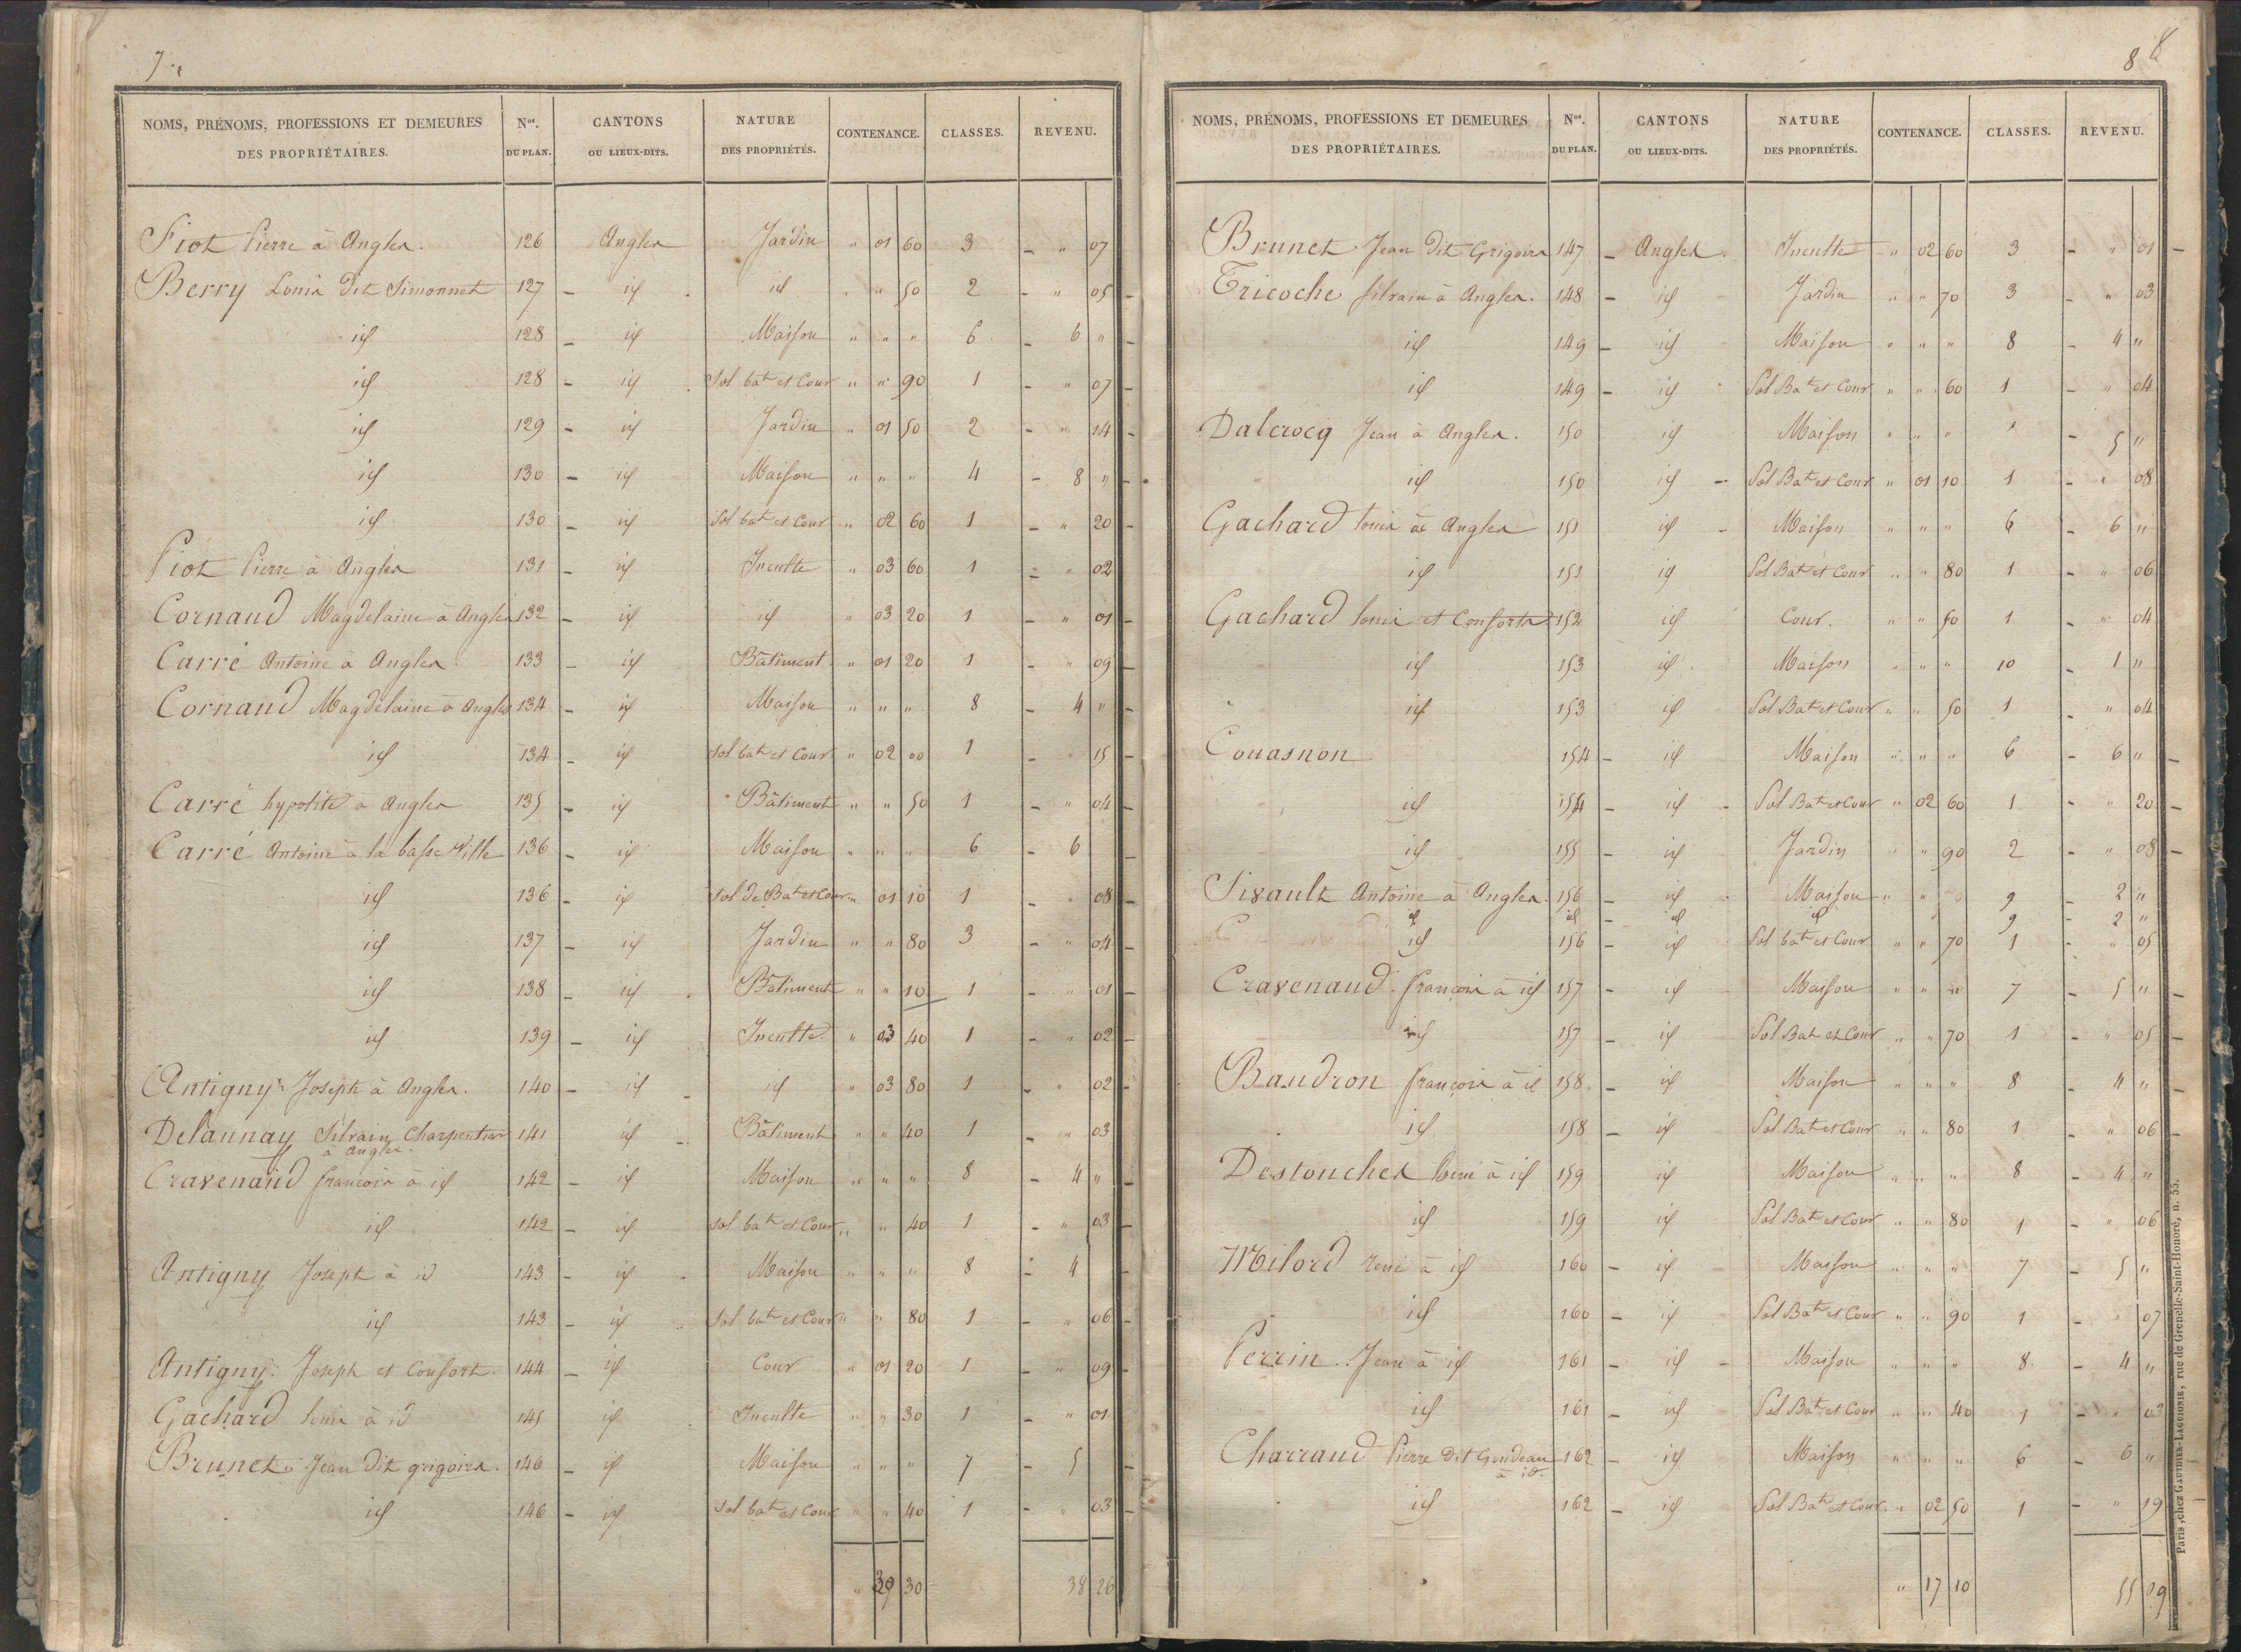 7
NOMS, PRÉNOMS, PROFESSIONS ET DEMEURES DES PROPRIÉTAIRES. Nos. DU PLAN. CANTONS OU LIEUX-DITS. NATURE DES PROPRIÉTÉS. CONTENANCE. CLASSES. REVENU.
Piot Pierre à Angles. 126 Angles Jardin " 01 60 3 - " 07
Berry Louis dit Simonnet 127 - id id " " 50 2 - " 05 -
id 128 - id Maison " " " 6 - 6 " -
id 128 - id Sol bat et Cour " " 90 1 - " 07 -
id 129 - id Jardin " 01 50 2 - " 14 -
id 130 - id Maison " " " 4 - 8 " -
id 130 - id Sol bat et Cour " 02 60 1 - " 20 -
Piot Pierre à Angles 131 - id Inculte " 03 60 1 - " 02
Cornaud Magdelaine à Angles 132 - id id " 03 20 1 - " 01 -
Carré Antoine à Angles. 133 - id Bâtiment " 01 20 1 - " 09 -
Cornaud Magdelaine à Angles 134 - id Maison " " " 8 - 4 " -
id 134 - id sol bat et Cour " 02 00 1 - " 15 -
Carré hypolite à Angles 135 - id Bâtiment " " 50 1 - " 04 -
Carré Antoine à la basse Ville 136 - id Maison " " " 6 - 6 -
id 136 - id sol de Bat et Cour " 01 10 1 - " 08 -
id 137 - id Jardin " " 80 3 - " 04 -
id 138 - id Bâtiment " " 10 1 - " 01 -
id 139 - id Inculte " 03 40 1 - " 02 -
Antigny Joseph à Angles. 140 - id id " 03 80 1 - " 02 -
Delannay Silvain Charpentier 141 id - Bâtiment " " 40 1 - " 03
à Angles.
Cravenaud françois à id 142 - id Maison " " " 8 - 4 " -
id 142 - id sol bat et Cour " " 40 1 - " 03 -
Antigny Joseph à id 143 - id Maison " " " 8 - 4 -
id 143 - id sol bat et Cour " " 80 1 - " 06 -
Antigny Joseph et Consort. 144 - id Cour " 01 20 1 - " 09 -
Gachard louis à id 145 id Inculte " " 30 1 - " 01
Brunet Jean Dit grigoire. 146 - id Maison " " " 7 - 5 -
id 146 - id sol bat et Cour " " 40 1 - " 03 -
" 39 30 38 26
8 8
NOMS, PRÉNOMS, PROFESSIONS ET DEMEURES DES PROPRIÉTAIRES. Nos. DU PLAN. CANTONS OU LIEUX-DITS. NATURE DES PROPRIÉTÉS. CONTENANCE. CLASSES. REVENU.
Brunet Jean Dit Grigoire 147 - Angles Inculte " 02 60 3 - " 01 -
Tricoche Silvain à Angles. 148 - id Jardin " " 70 3 - " 03
id 149 - id Maison " " " 8 - 4 "
id 149 - id Sol Bat et Cour " " 60 1 - " 04
Dalcrocq Jean à Angles. 150 id Maison " " " - 5 "
id 150 id - Sol Bat et Cour " 01 10 1 - " 08
Gachard louis à Angles 151 id - Maison " " " 6 - 6 "
id 151 id Sol Bat et Cour " " 80 1 - " 06
Gachard louis et Consorts 152 id Cour. " " 50 1 - " 04
id 153 id Maison " " " 10 - 1 "
id 153 id Sol Bat et Cour " " 50 1 - " 04
Couasnon 154 - id Maison " " " 6 - 6 " -
id 154 - id - Sol Bat et Cour " 02 60 1 - " 20 -
id 155 - id Jardin " " 90 2 - " 08 -
Sixault Antoine à Angles. 156 - id Maison " " 9 - 2 "
id id - id id 9 - 2 "
id 156 - id Sol bat et Cour " " 70 1 - " 05
Cravenaud françois à id 157 - id Maison " " " 7 - 5 " -
id 157 - id Sol Bat et Cour " " 70 1 - " 05 -
Baudron françois à id 158 - id Maison " " " 8 - 4 " -
id 158 - id Sol Bat et Cour " " 80 1 - " 06 -
Destouches René à id 159 id Maison " " " 8 - 4 "
id 159 id Sol Bat et Cour " " 80 1 - " 06
Milord René à id 160 - id Maison " " " 7 - 5 "
id 160 - id Sol Bat et Cour " " 90 1 - " 07
Perrin Jean à id 161 - id - Maison " " " 8 - 4 "
id 161 - id Sol Bat et Cour " " 40 1 - " 03
Charraud Pierre Dit Gendeau 162 - id Maison " " " 6 - 6 " -
à id.
id 162 - id Sol Bat et Cour " 02 50 1 - " 19 -
" 17 10 55 09
Paris, chez GAUTHIER-LAGUIONIE, rue de Grenelle-Saint-Honoré, n. 55.